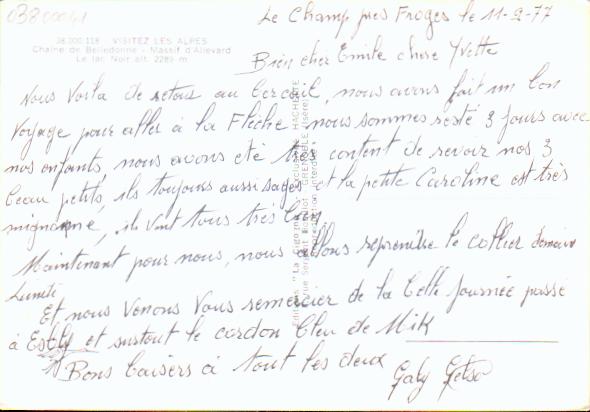 03800041
38.000.118 - VISITEZ LES ALPES
Chaîne de Belledonne - Massif d'Allevard
Le lac Noir alt. 2289 m
Le Champ près Froges le 11-9-77
Bien cher Emile chere Yvette
Nous voila de retour au bercail, nous avons fait un bon
voyage pour aller à la Flèche nous sommes resté 3 jours avec
nos enfants, nous avons été très content de revoir nos 3
beau petits, ils toujours aussi sages et la petite Caroline est très
mignonne, ils vont tous très bien
Maintenant pour nous, nous allons reprendre le collier demain
Lundi
Et nous venons vous remercier de la belle journée passe
à et surtout le cordon bleu de Mik
Bons baisers à tout les deux
Gaby